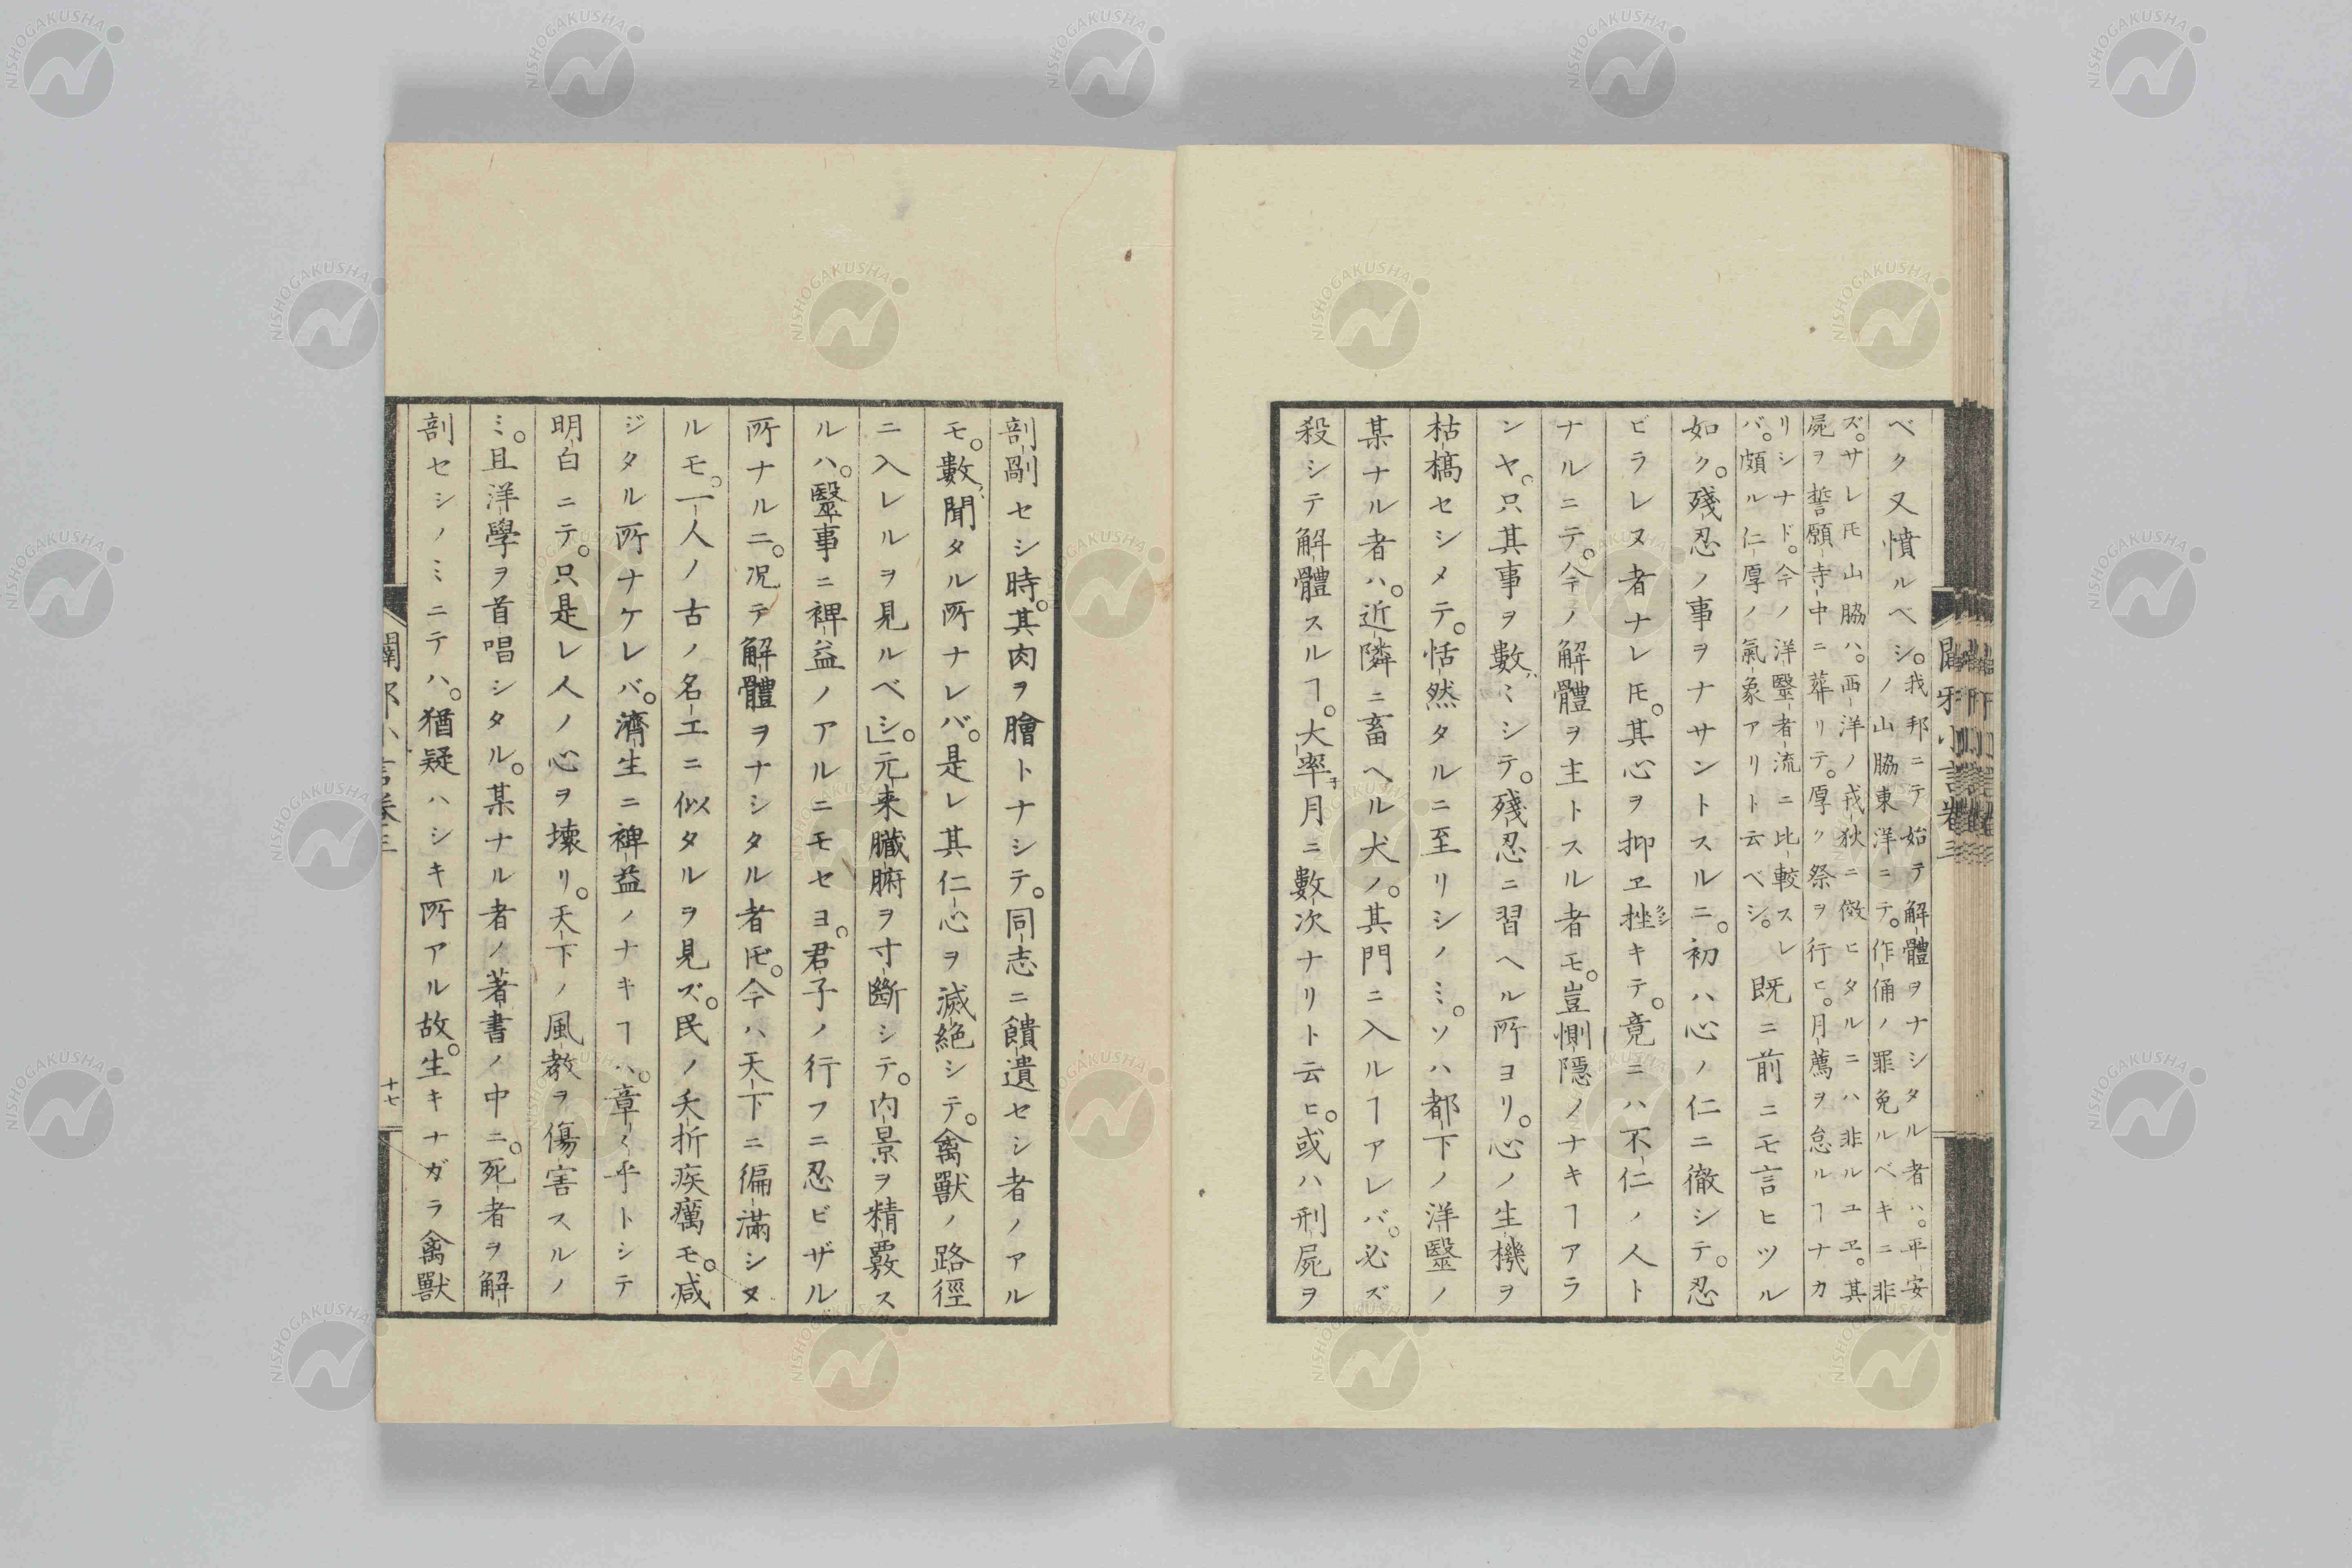 ベク又憤ルベシ。我邦ニテ始テ解體ヲナシタル者ハ。平安
ノ山脇東洋ニテ。作俑ノ罪免ルベキニ非
ズ。サレ𪜈山脇ハ。西洋ノ戎狄ニ傚ヒタルニハ非ルユヱ。其
屍ヲ誓願寺中ニ葬リテ。厚ク祭ヲ行ヒ。月薦ヲ怠ルヿナカ
リシナド。今ノ洋醫者流ニ比較スレ
バ。頗ル仁厚ノ氣象アリト云ベシ。既ニ前ニモ言ヒツル
如ク。殘忍ノ事ヲナサントスルニ。初ハ心ノ仁ニ徹シテ。忍
ビラレヌ者ナレ𪜈。其心ヲ抑ヱ挫キテ。竟ニハ不仁ノ人ト
ナルニテ。今ノ解體ヲ主トスル者モ。豈惻隱ノナキヿアラ
ンヤ。只其事ヲ數〻ミシテ。殘忍ニ習ヘル所ヨリ。心ノ生機ヲ
枯槁セシメテ。恬然タルニ至リシノミ。ソハ都下ノ洋醫ノ
某ナル者ハ。近隣ニ畜ヘル犬ノ。其門ニ入ルヿアレバ。必ズ
殺シテ解體スルヿ。大率月ニ數次ナリト云ヒ。或ハ刑屍ヲ
闢邪小言卷三
剖剮セシ時。其肉ヲ膾トナシテ。同志ニ饋遺セシ者ノアル
モ。數〻聞タル所ナレバ。是レ其仁心ヲ滅絶シテ。禽獸ノ路徑
ニ入レルヲ見ルベシ。」元来臓腑ヲ寸斷シテ。内景ヲ精覈ス
ルハ。醫事ニ裨益ノアルニモセヨ。君子ノ行フニ忍ビザル
所ナルニ。况テ解體ヲナシタル者𪜈。今ハ天下ニ徧滿シヌ
ルモ。一人ノ古ノ名工ニ似タルヲ見ズ。民ノ夭折疾癘モ。减
ジタル所ナケレバ。濟生ニ裨益ノナキヿハ。章〻乎トシテ
明白ニテ。只是レ人ノ心ヲ壊リ。天下ノ風教ヲ傷害スルノ
ミ。且洋學ヲ首唱シタル。某ナル者ノ著書ノ中ニ。死者ヲ解
剖セシノミニテハ。猶疑ハシキ所アル故。生キナガラ禽獸
闢邪小言卷三
十七
NISHOGAKUSHA